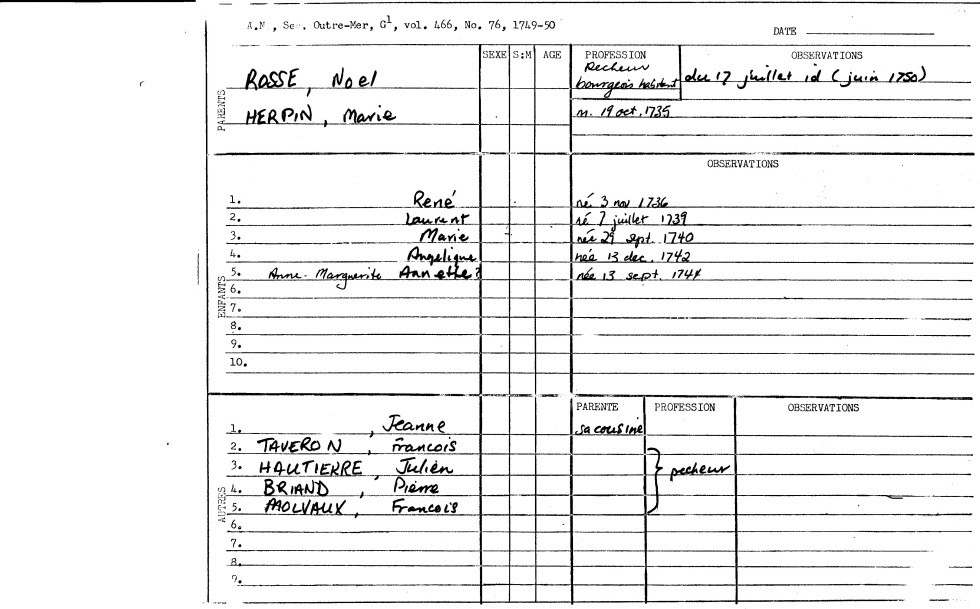 A.N , Sec. Outre-Mer, G1, vol. 466, No. 76, 1749-50
DATE
SEXE S:M AGE PROFESSION OBSERVATIONS
PARENTS
ROSSE, Noel Pecheur bourgeois habitant du 17 juillet id (juin 1750)
HERPIN, Marie m. 19 oct. 1735
OBSERVATIONS
ENFANTS
1. René né 3 nov 1736
2. Laurent né 7 juillet 1739
3. Marie née 29 sept. 1740
4. Angelique née 13 dec. 1742
5. Anne-Marguerite Annethe? née 13 sept. 1744
6.
7.
8.
9.
10.
PARENTE PROFESSION OBSERVATIONS
AUTRES
1. , Jeanne sa cousine
2. TAVERON, Francois
3. HAUTIERRE, Julien } pecheur
4. BRIAND, Pierre
5. MOLVAUX, Francois
6.
7.
8.
9.